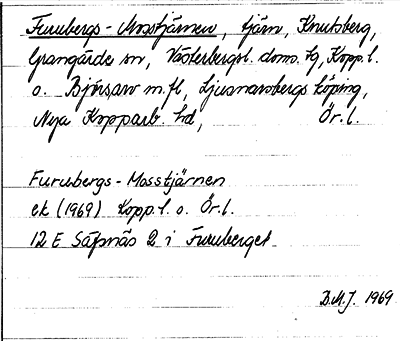 Furubergs-Mosstjärnen, tjärn, Knutsberg,
Grangärde sn, Västerbergsl. doms. tg, Kopp. l.
o. Björsarv m.fl, Ljusnarsbergs köping,
Nya Kopparb. hd, Ör. l.
Furubergs-Mosstjärnen
ek (1969) Kopp. l. o. Ör. l.
12 E Säfsnäs 2 i Furuberget
B.M.J. 1969